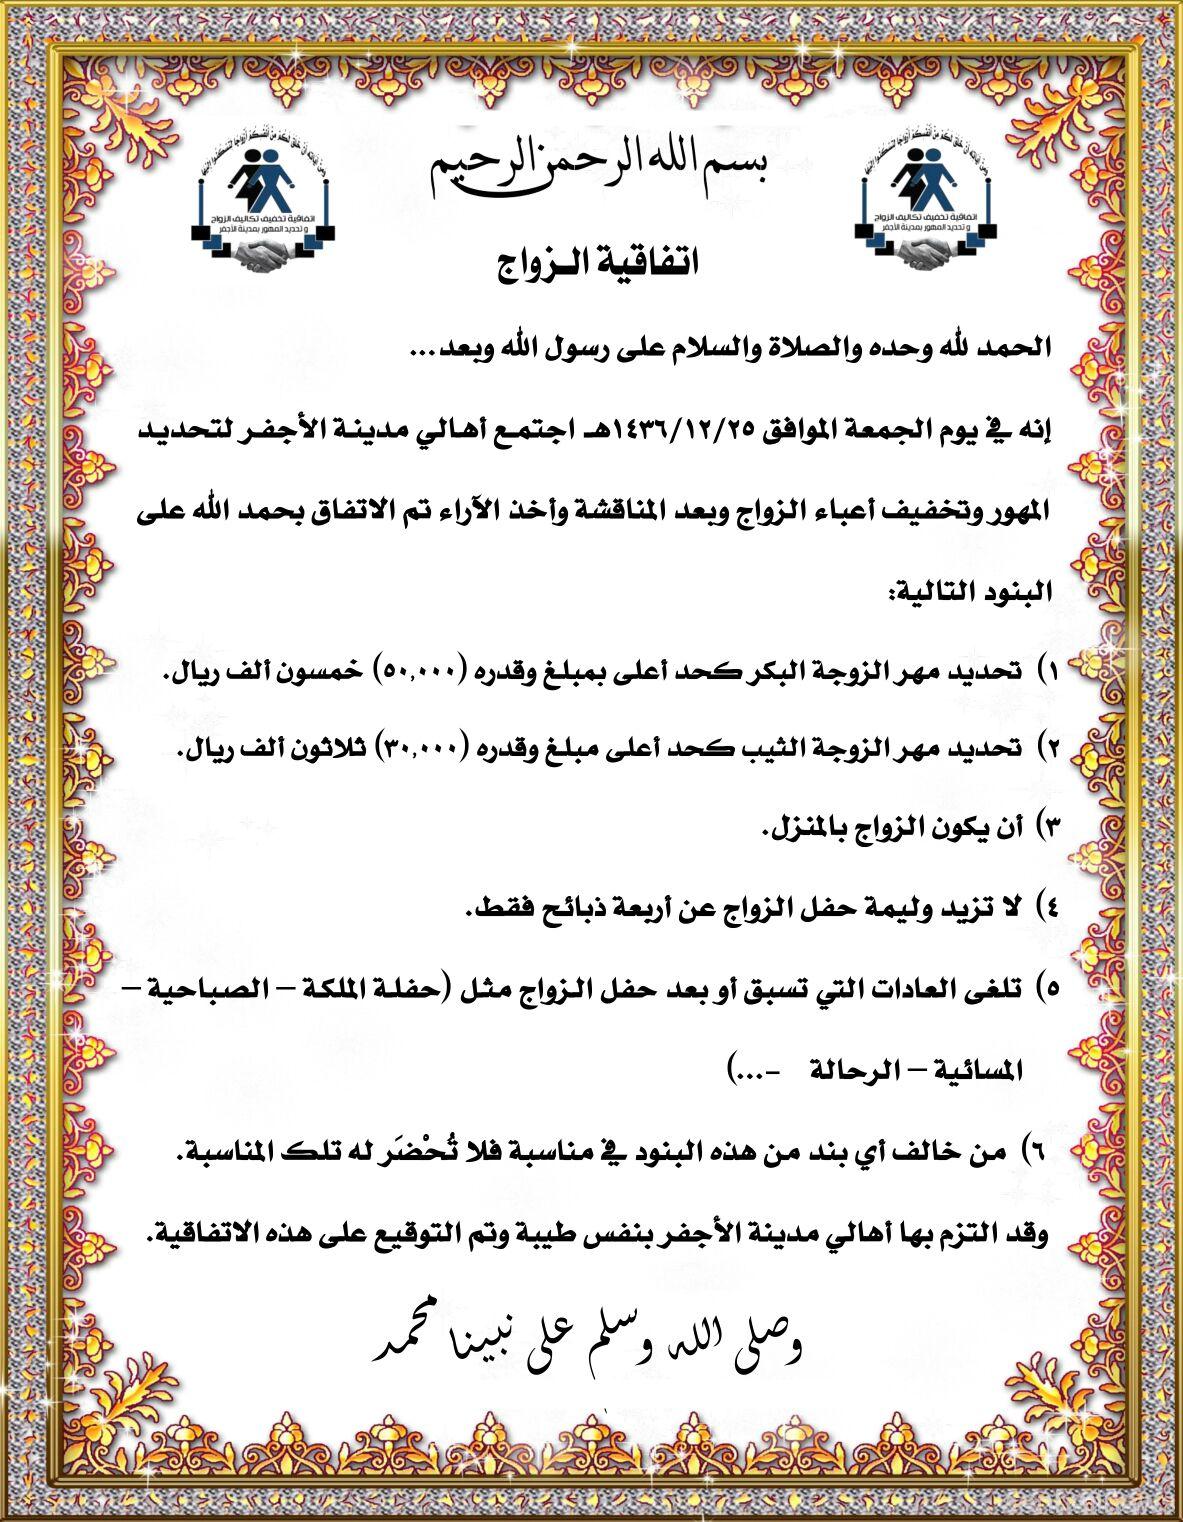 بسم الله الرحمن الرحيم
ومن آياته أن خلق لكم من أنفسكم أزواجا لتسكنوا إليها
اتفاقية تخفيف تكاليف الزواج
و تحديد المهور بمدينة الأجفر
ومن آياته أن خلق لكم من أنفسكم أزواجا لتسكنوا إليها
اتفاقية تخفيف تكاليف الزواج
و تحديد المهور بمدينة الأجفر
اتفاقية الـزواج
الحمد لله وحده والصلاة والسلام على رسول الله وبعد...
إنه في يوم الجمعة الموافق ١٤٣٦/١٢/٢٥هـ اجتمع أهالي مدينة الأجفر لتحديد
المهور وتخفيف أعباء الزواج وبعد المناقشة وأخذ الآراء تم الاتفاق بحمد الله على
البنود التالية:
١) تحديد مهر الزوجة البكر كحد أعلى بمبلغ وقدره (٥٠,٠٠٠) خمسون ألف ريال.
٢) تحديد مهر الزوجة الثيب كحد أعلى مبلغ وقدره (٣٠,٠٠٠) ثلاثون ألف ريال.
٣) أن يكون الزواج بالمنزل.
٤) لا تزيد وليمة حفل الزواج عن أربعة ذبائح فقط.
٥) تلغى العادات التي تسبق أو بعد حفل الزواج مثل (حفلة الملكة – الصباحية –
المسائية – الرحالة -...)
٦) من خالف أي بند من هذه البنود في مناسبة فلا تُحْضَر له تلك المناسبة.
وقد التزم بها أهالي مدينة الأجفر بنفس طيبة وتم التوقيع على هذه الاتفاقية.
وصلى الله وسلم على نبينا محمد